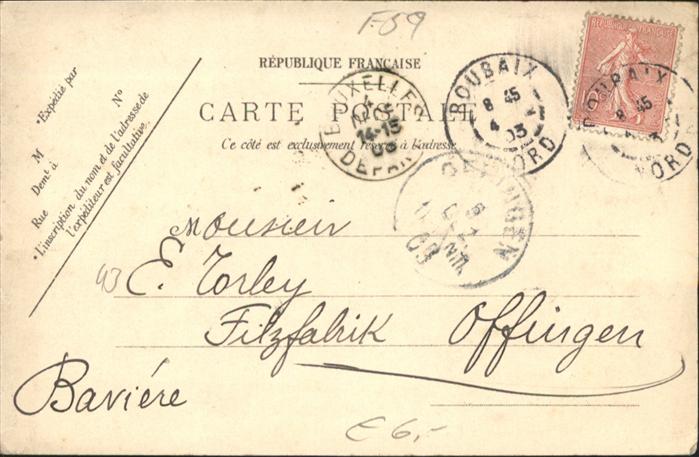 F-59
RÉPUBLIQUE FRANÇAISE
CARTE POSTALE
Ce côté est exclusivement réservé à l'adresse.
Expédié par
M
Nº
Demt à
Rue
L'inscription du nom et de l'adresse de
l'expéditeur est facultative.
BRUXELLES
14-15
03
DEPART
ROUBAIX
8 45
4
03
NORD
REPUBLIQUE FRANÇAISE
ROUBAIX
8 45
NORD
OFFINGEN
03
Monsieur
43
E. Torley
Filzfabrik Offingen
Baviére
€ 6,-